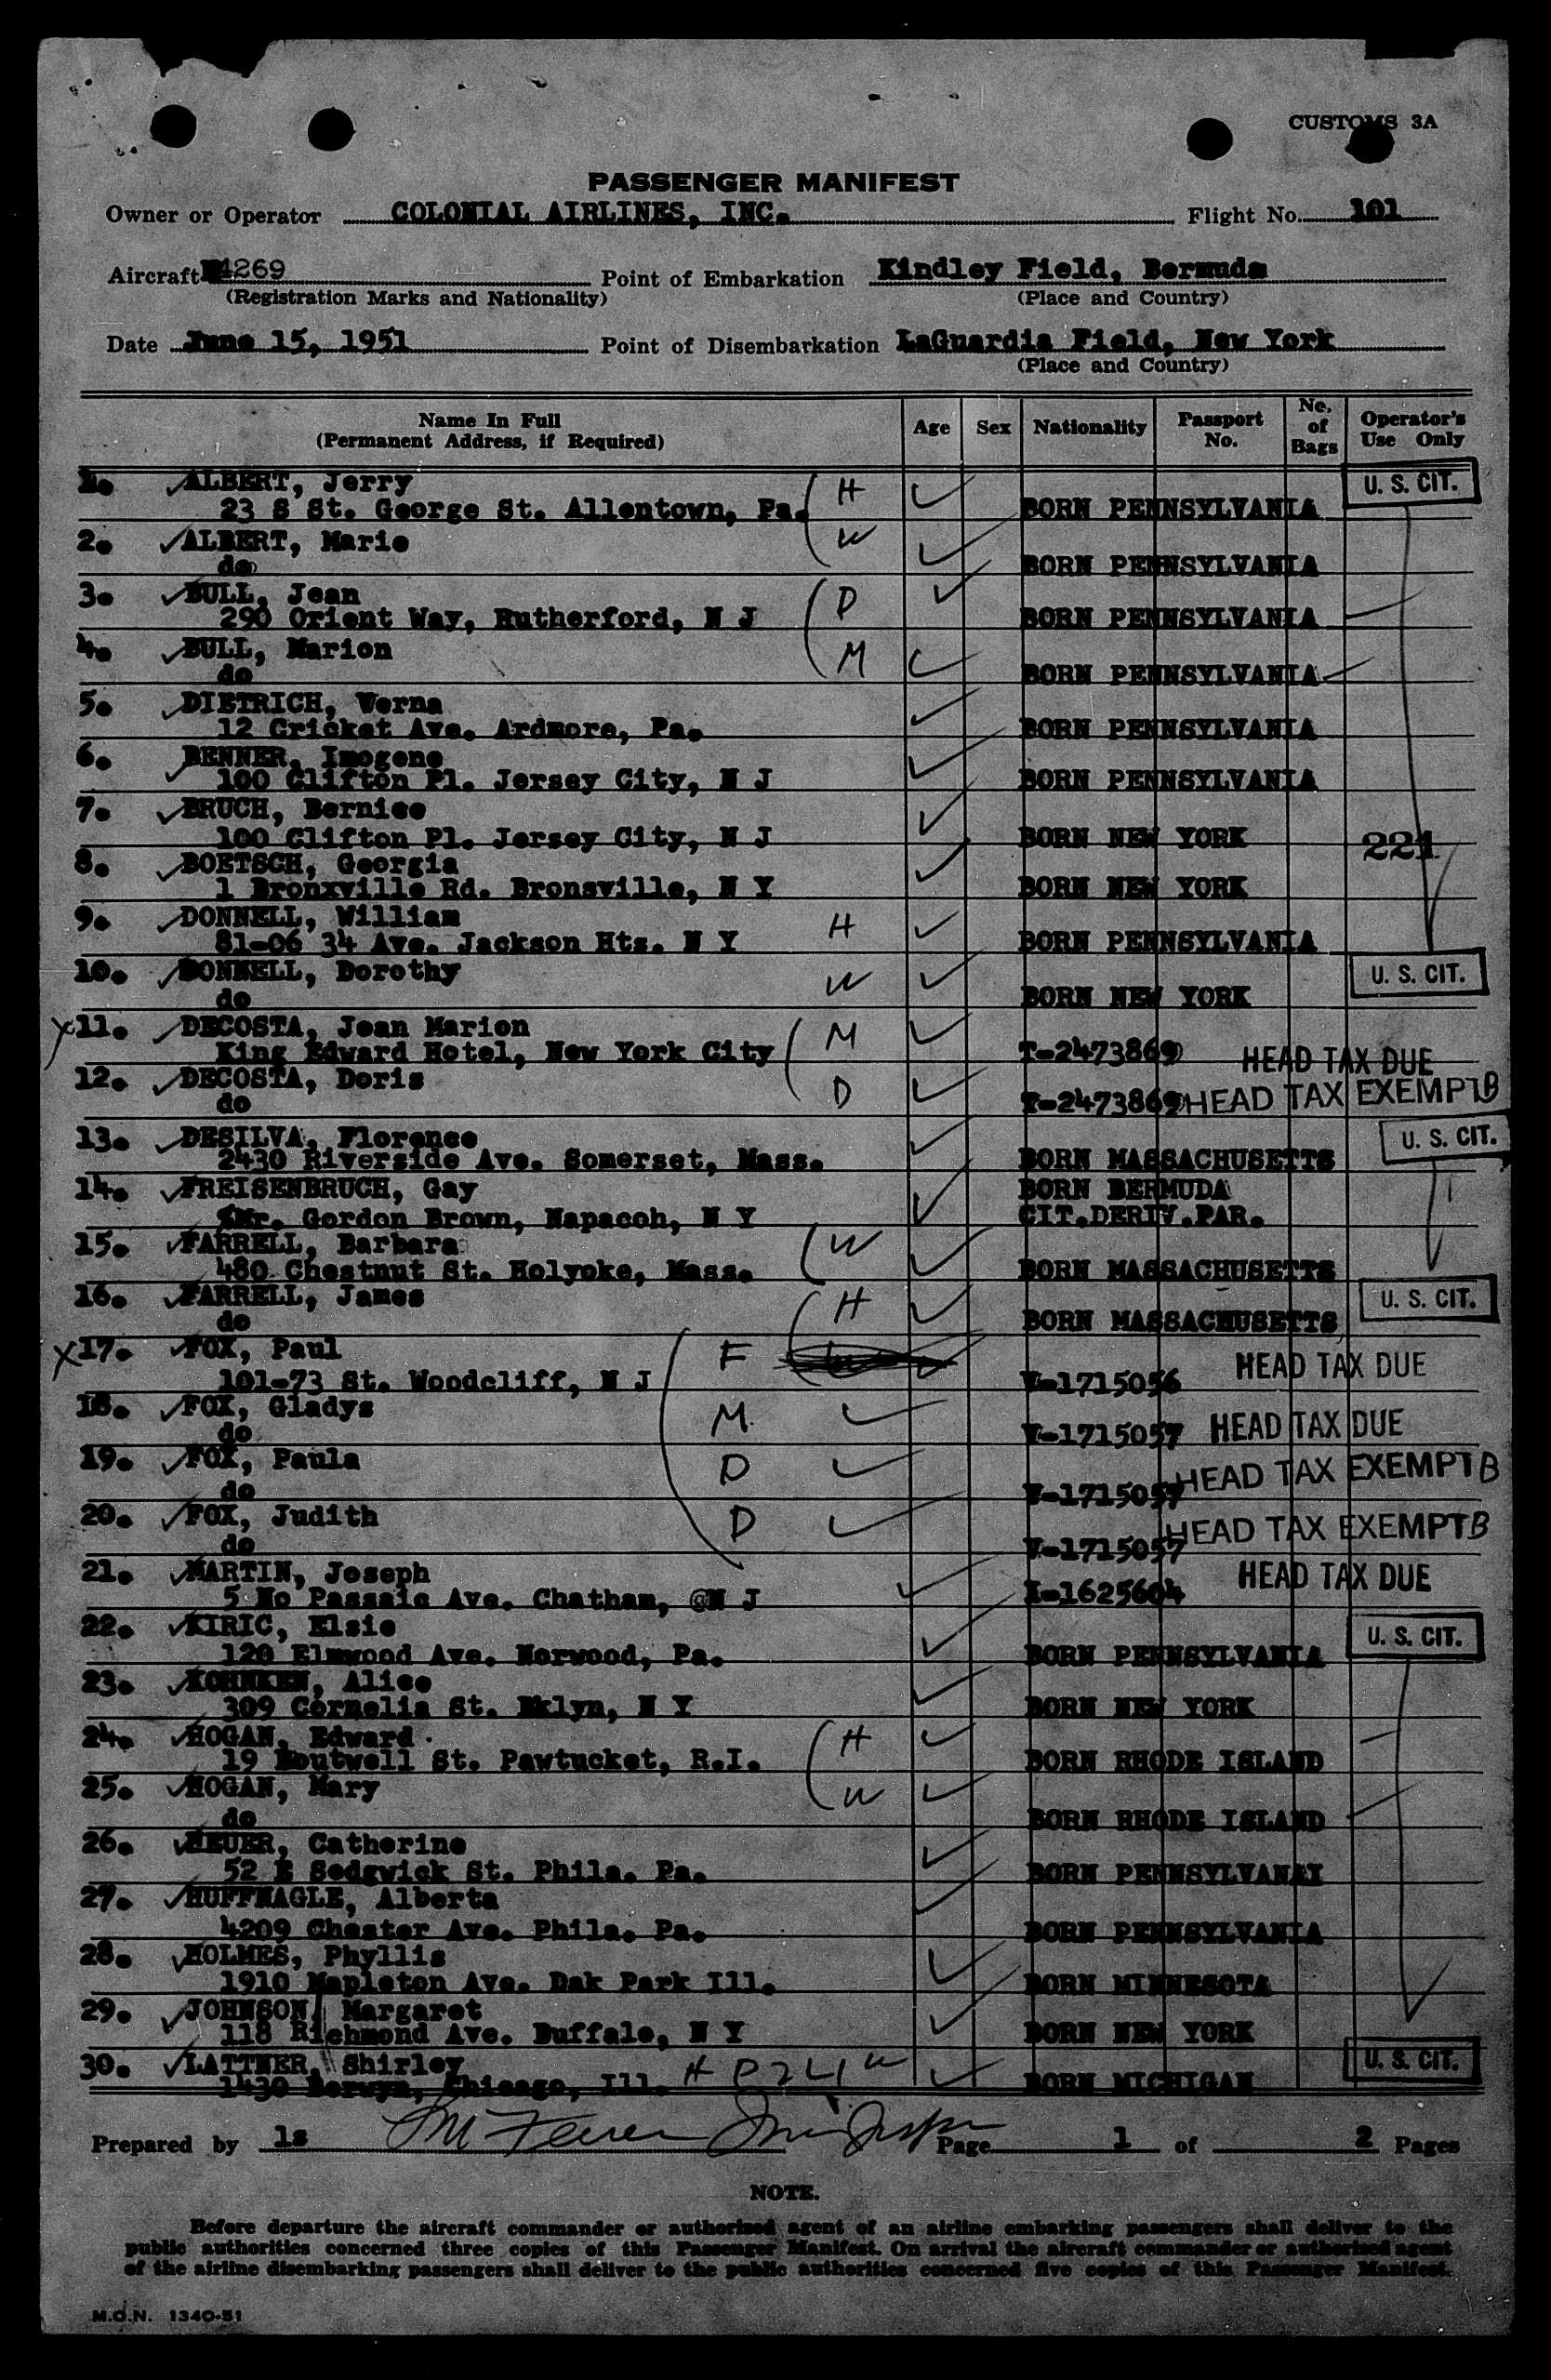 CUSTOMS 3A
PASSENGER MANIFEST
Owner or Operator COLONIAL AIRLINES, INC. Flight No. 101
Aircraft N4269 Point of Embarkation Kindley Field, Bermuda
(Registration Marks and Nationality) (Place and Country)
Date June 15, 1951 Point of Disembarkation LaGuardia Field, New York
(Place and Country)
Name In Full (Permanent Address, if Required) Age Sex Nationality Passport No. No. of Bags Operator's Use Only
1. ALBERT, Jerry H U. S. CIT.
23 S St. George St. Allentown, Pa. BORN PENNSYLVANIA
2. ALBERT, Marie W
do BORN PENNSYLVANIA
3. BULL, Jean D
290 Orient Way, Rutherford, N J BORN PENNSYLVANIA
4. BULL, Marion M
do BORN PENNSYLVANIA
5. DIETRICH, Verna
12 Cricket Ave. Ardmore, Pa. BORN PENNSYLVANIA
6. BENNER, Imogene
100 Clifton Pl. Jersey City, N J BORN PENNSYLVANIA
7. BRUCH, Bernice
100 Clifton Pl. Jersey City, N J BORN NEW YORK 221
8. BOETSCH, Georgia
1 Bronxville Rd. Bronsville, N Y BORN NEW YORK
9. DONNELL, William H
81-06 34 Ave. Jackson Hts. N Y BORN PENNSYLVANIA
10. DONNELL, Dorothy W U. S. CIT.
do BORN NEW YORK
x11. DECOSTA, Jean Marion M
King Edward Hotel, New York City T-2473869 HEAD TAX DUE
12. DECOSTA, Doris D
do T-2473869 HEAD TAX EXEMPT B
13. DESILVA, Florence U. S. CIT.
2430 Riverside Ave. Somerset, Mass. BORN MASSACHUSETTS
14. FREISENBRUCH, Gay BORN BERMUDA
Mr. Gordon Brown, Napacoh, N Y CIT.DERIV.PAR.
15. FARRELL, Barbara W
480 Chestnut St. Holyoke, Mass. BORN MASSACHUSETTS
16. FARRELL, James H U. S. CIT.
do BORN MASSACHUSETTS
x17. FOX, Paul F HEAD TAX DUE
101-73 St. Woodcliff, N J V-1715056
18. FOX, Gladys M HEAD TAX DUE
do V-1715057
19. FOX, Paula D HEAD TAX EXEMPT B
do V-1715057
20. FOX, Judith D HEAD TAX EXEMPT B
do V-1715057
21. MARTIN, Joseph HEAD TAX DUE
5 No Passaic Ave. Chatham, @N J I-1625604
22. KIRIC, Elsie U. S. CIT.
120 Elmwood Ave. Norwood, Pa. BORN PENNSYLVANIA
23. KOHNKEN, Alice
309 Cornelia St. Bklyn, N Y BORN NEW YORK
24. HOGAN, Edward H
19 Boutwell St. Pawtucket, R.I. BORN RHODE ISLAND
25. HOGAN, Mary W
do BORN RHODE ISLAND
26. HEUER, Catherine
52 E Sedgwick St. Phila. Pa. BORN PENNSYLVANAI
27. HUFFNAGLE, Alberta
4209 Chester Ave. Phila. Pa. BORN PENNSYLVANIA
28. HOLMES, Phyllis
1910 Mapleton Ave. Dak Park Ill. BORN MINNESOTA
29. JOHNSON, Margaret
118 Richmond Ave. Buffalo, N Y BORN NEW YORK
30. LATTNER, Shirley U. S. CIT.
1430 Berwyn, Chicago, Ill. BORN MICHIGAN
Prepared by ls Page 1 of 2 Pages
NOTE.
Before departure the aircraft commander or authorized agent of an airline embarking passengers shall deliver to the
public authorities concerned three copies of this Passenger Manifest. On arrival the aircraft commander or authorized agent
of the airline disembarking passengers shall deliver to the public authorities concerned five copies of this Passenger Manifest.
M.O.N. 1340-51